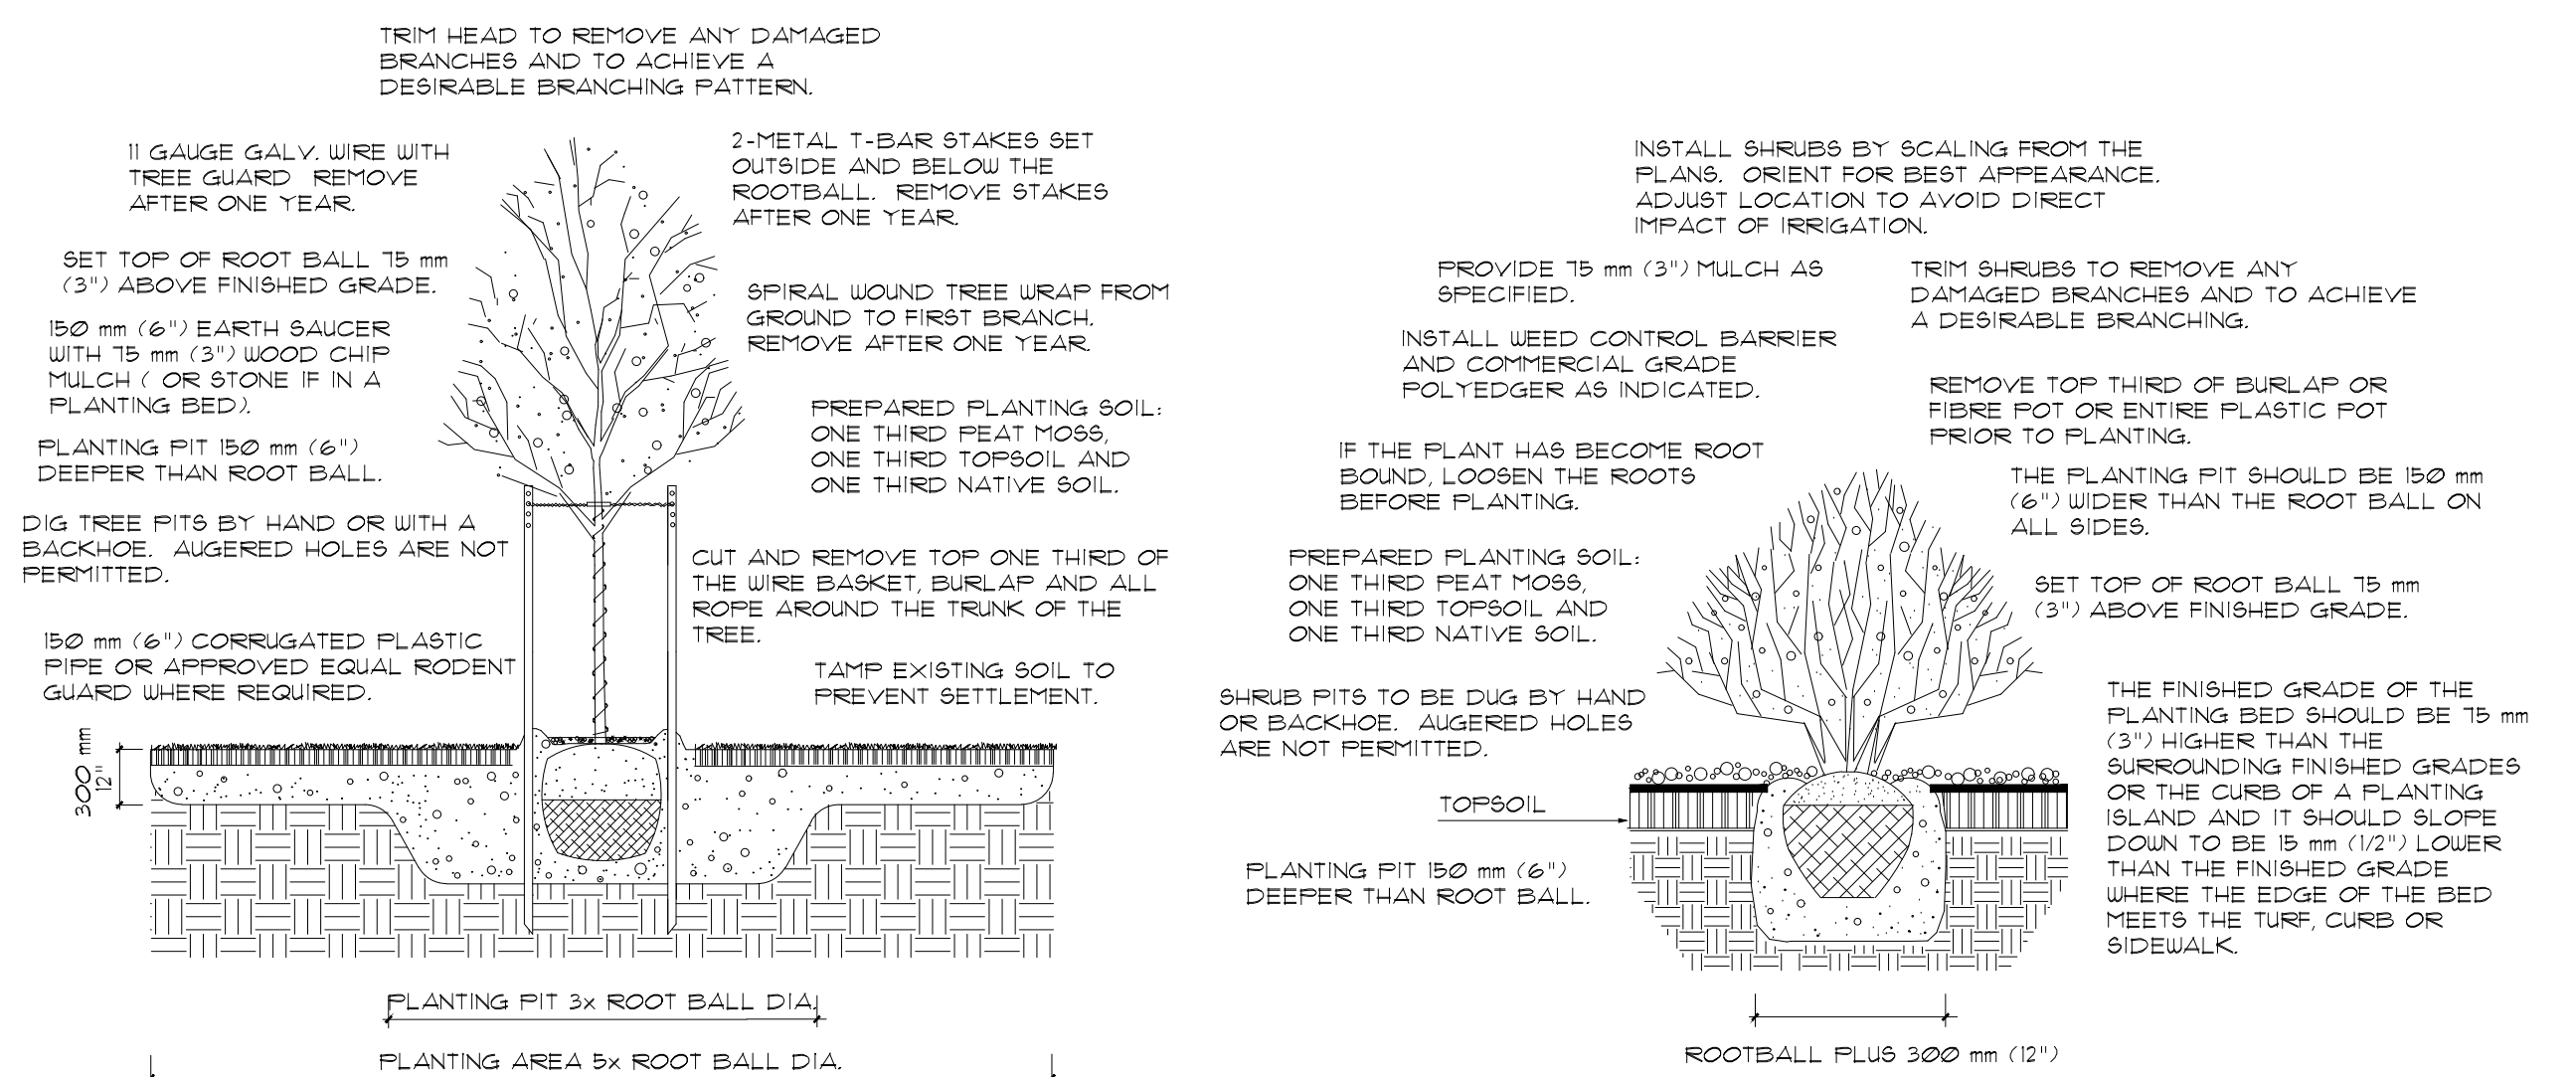 TRIM HEAD TO REMOVE ANY DAMAGED
BRANCHES AND TO ACHIEVE A
DESIRABLE BRANCHING PATTERN.
11 GAUGE GALV. WIRE WITH
TREE GUARD REMOVE
AFTER ONE YEAR.
SET TOP OF ROOT BALL 75 mm
(3") ABOVE FINISHED GRADE.
150 mm (6") EARTH SAUCER
WITH 75 mm (3") WOOD CHIP
MULCH ( OR STONE IF IN A
PLANTING BED).
PLANTING PIT 150 mm (6")
DEEPER THAN ROOT BALL.
DIG TREE PITS BY HAND OR WITH A
BACKHOE. AUGERED HOLES ARE NOT
PERMITTED.
150 mm (6") CORRUGATED PLASTIC
PIPE OR APPROVED EQUAL RODENT
GUARD WHERE REQUIRED.
300 mm
12"
2-METAL T-BAR STAKES SET
OUTSIDE AND BELOW THE
ROOTBALL. REMOVE STAKES
AFTER ONE YEAR.
SPIRAL WOUND TREE WRAP FROM
GROUND TO FIRST BRANCH.
REMOVE AFTER ONE YEAR.
PREPARED PLANTING SOIL:
ONE THIRD PEAT MOSS,
ONE THIRD TOPSOIL AND
ONE THIRD NATIVE SOIL.
CUT AND REMOVE TOP ONE THIRD OF
THE WIRE BASKET, BURLAP AND ALL
ROPE AROUND THE TRUNK OF THE
TREE.
TAMP EXISTING SOIL TO
PREVENT SETTLEMENT.
PLANTING PIT 3x ROOT BALL DIA.
PLANTING AREA 5x ROOT BALL DIA.
INSTALL SHRUBS BY SCALING FROM THE
PLANS. ORIENT FOR BEST APPEARANCE.
ADJUST LOCATION TO AVOID DIRECT
IMPACT OF IRRIGATION.
PROVIDE 75 mm (3") MULCH AS
SPECIFIED.
INSTALL WEED CONTROL BARRIER
AND COMMERCIAL GRADE
POLYEDGER AS INDICATED.
IF THE PLANT HAS BECOME ROOT
BOUND, LOOSEN THE ROOTS
BEFORE PLANTING.
PREPARED PLANTING SOIL:
ONE THIRD PEAT MOSS,
ONE THIRD TOPSOIL AND
ONE THIRD NATIVE SOIL.
SHRUB PITS TO BE DUG BY HAND
OR BACKHOE. AUGERED HOLES
ARE NOT PERMITTED.
TOPSOIL
PLANTING PIT 150 mm (6")
DEEPER THAN ROOT BALL.
TRIM SHRUBS TO REMOVE ANY
DAMAGED BRANCHES AND TO ACHIEVE
A DESIRABLE BRANCHING.
REMOVE TOP THIRD OF BURLAP OR
FIBRE POT OR ENTIRE PLASTIC POT
PRIOR TO PLANTING.
THE PLANTING PIT SHOULD BE 150 mm
(6") WIDER THAN THE ROOT BALL ON
ALL SIDES.
SET TOP OF ROOT BALL 75 mm
(3") ABOVE FINISHED GRADE.
THE FINISHED GRADE OF THE
PLANTING BED SHOULD BE 75 mm
(3") HIGHER THAN THE
SURROUNDING FINISHED GRADES
OR THE CURB OF A PLANTING
ISLAND AND IT SHOULD SLOPE
DOWN TO BE 15 mm (1/2") LOWER
THAN THE FINISHED GRADE
WHERE THE EDGE OF THE BED
MEETS THE TURF, CURB OR
SIDEWALK.
ROOTBALL PLUS 300 mm (12")